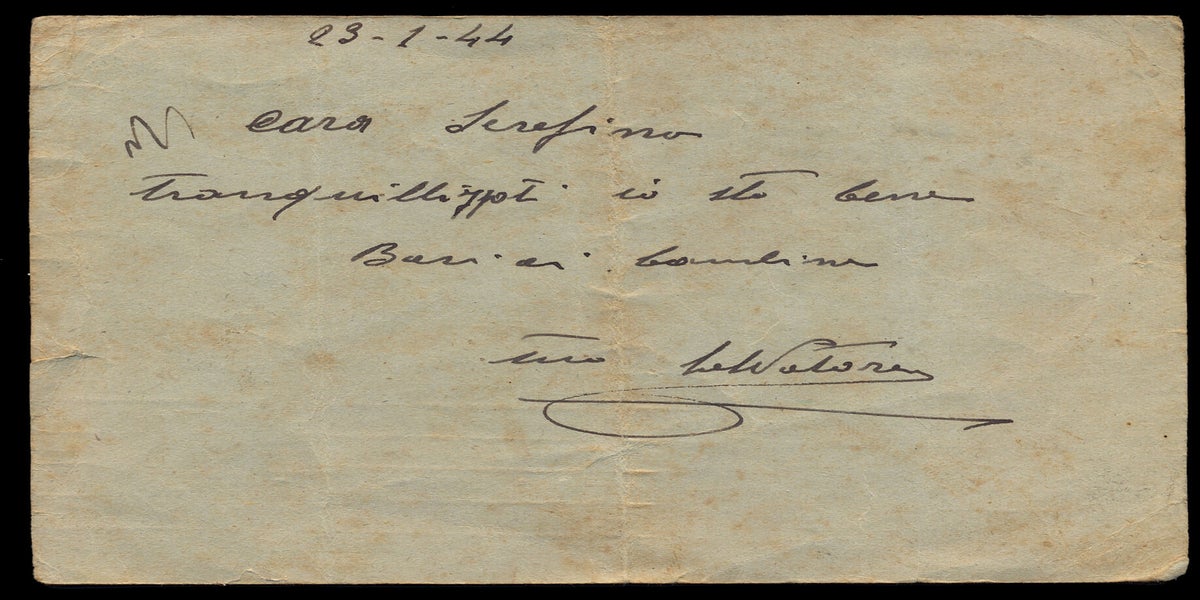 23-1-44
Cara Serafina
tranquillizzati io sto bene
Baci ai bambini
tuo Salvatore